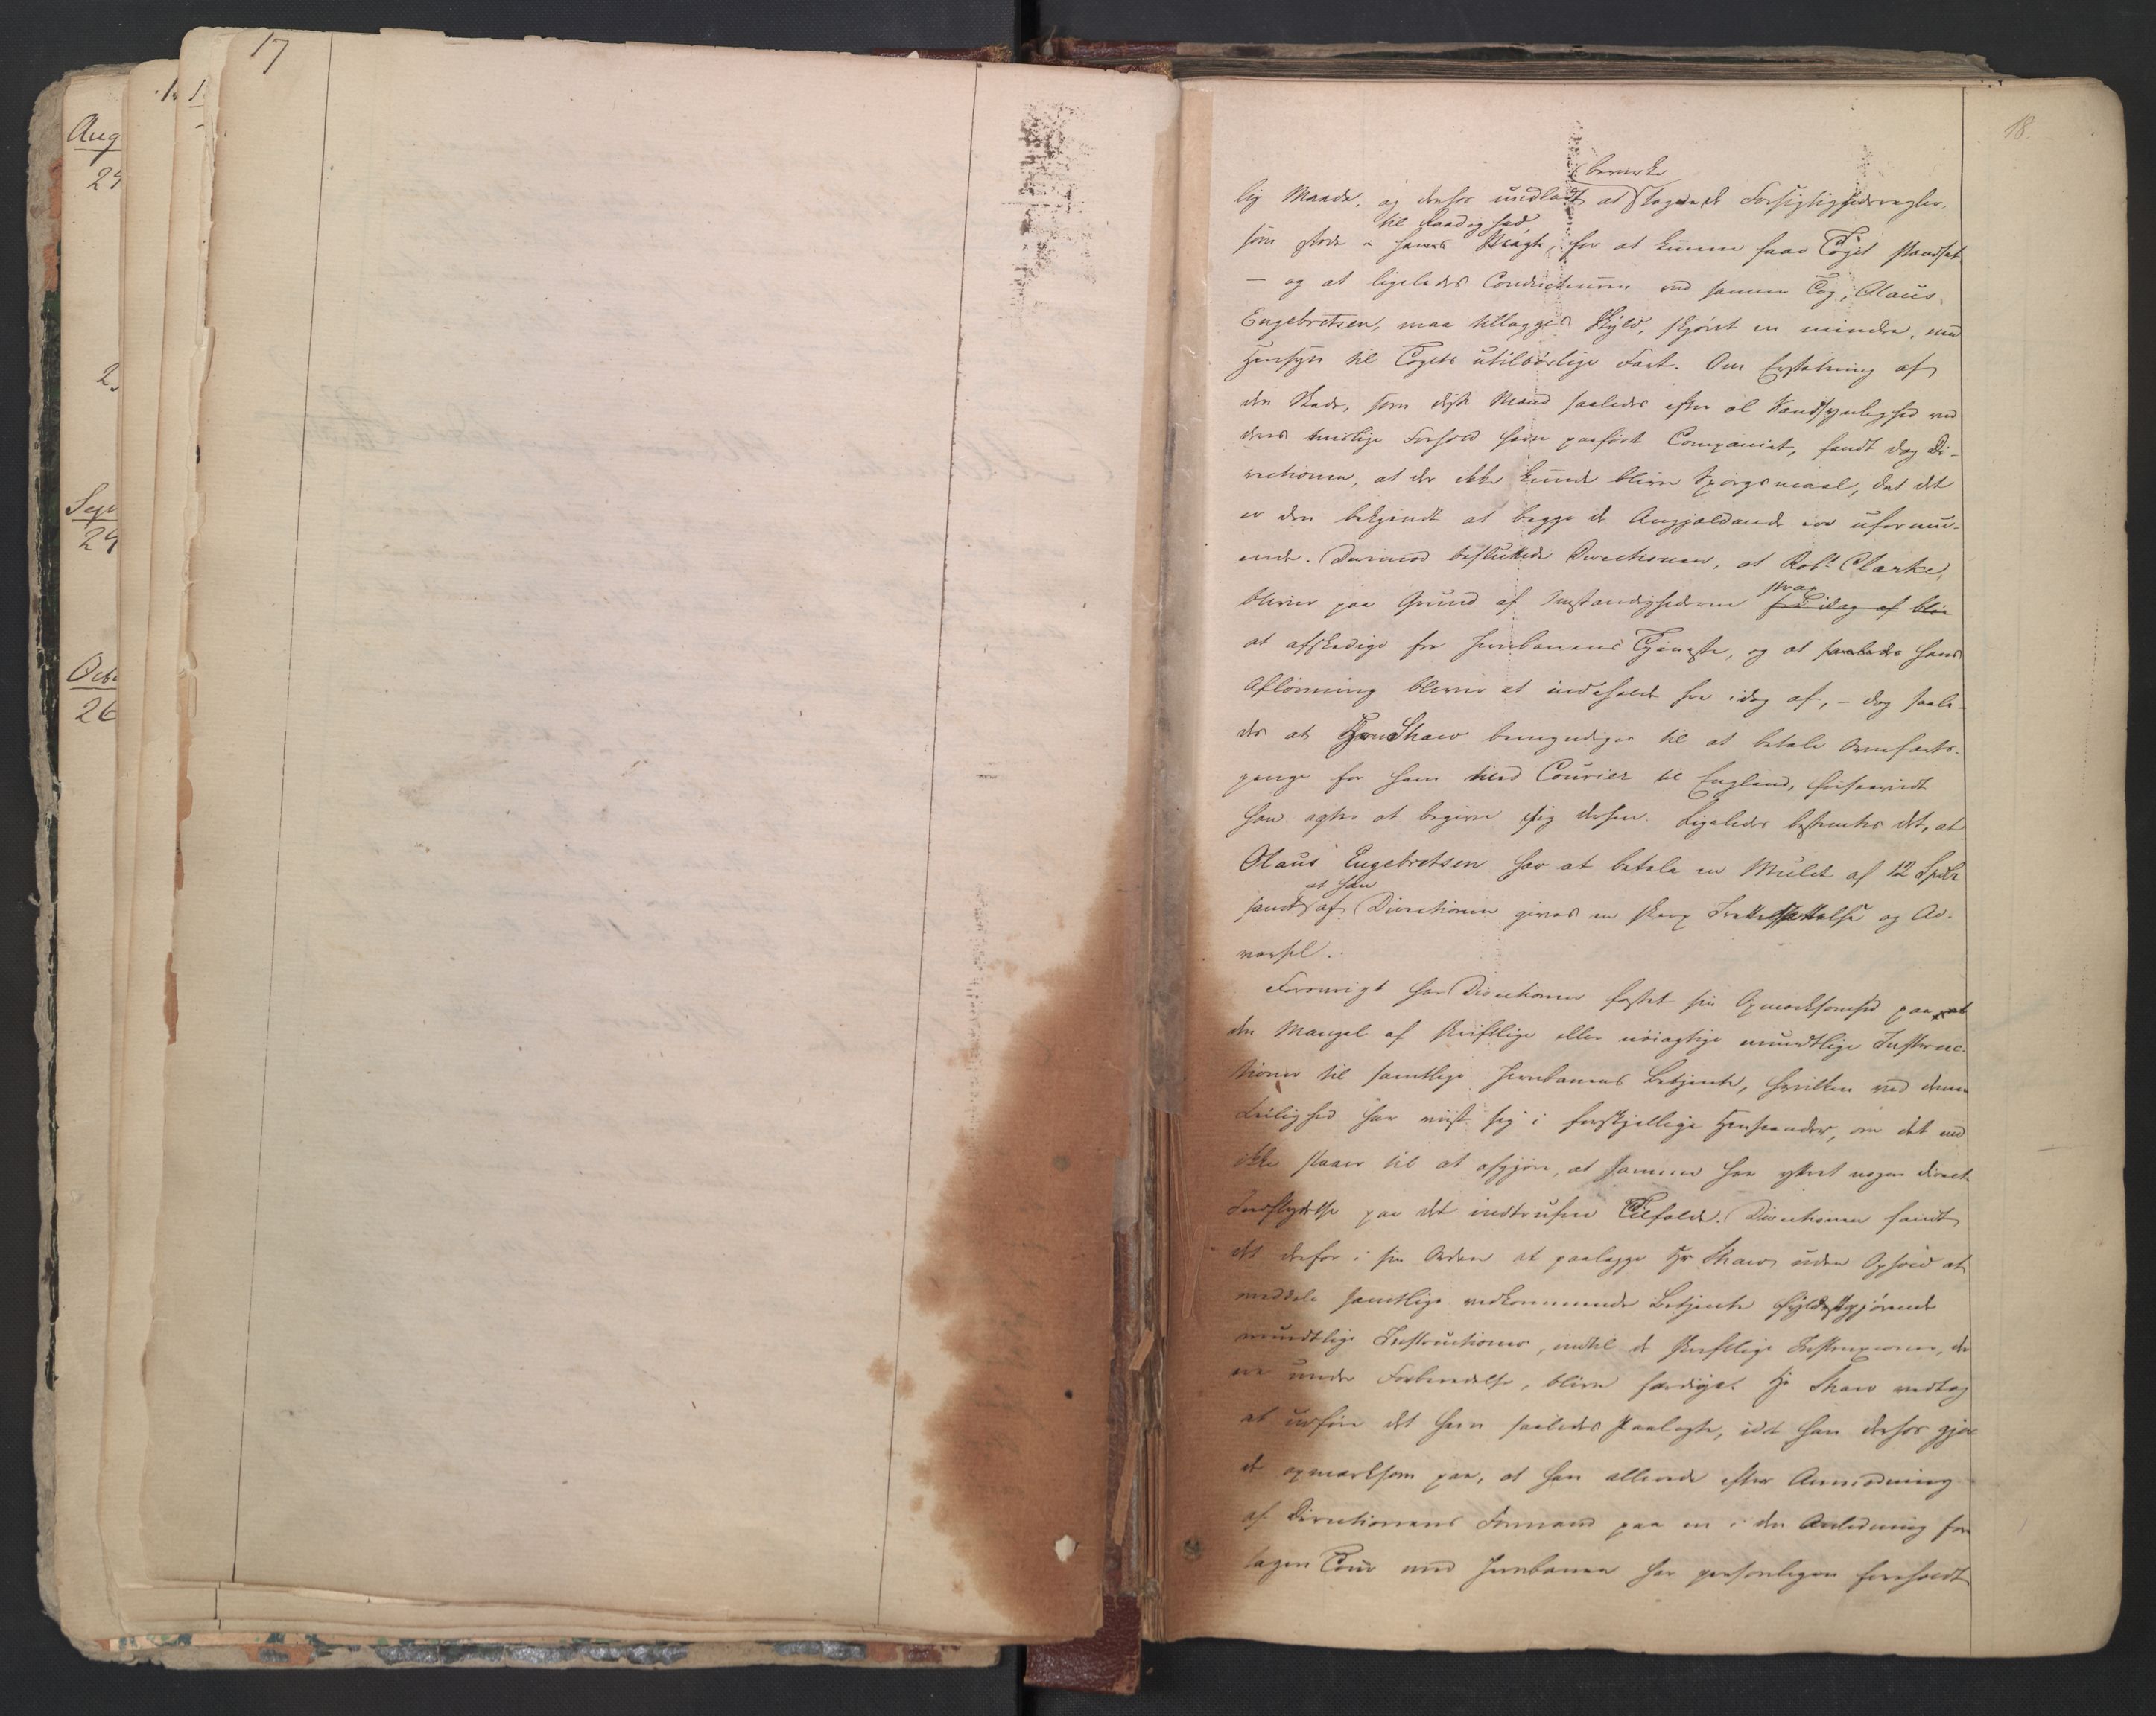 17
Aug
29
2
Sept
29
Octb
26
18.
bevirke
lig Maade, og derfor undladt at tagende Forsigtighedsregler,
til Raadighed
som stode i hans Magt, for at kunne faae Toget standset
– og at ligeledes Conducteuren ved samme Tog, Olaus
Engebretsen, maa tillægges Skyld, skjønt en mindre, med
Hensyn til Togets utilbørlige Fart. Om Erstatning af
den Skade, som disse Mænd saaledes efter al Sandsynlighed ved
deres urigtige Forhold have paaført Compagniet, fandt dog Di-
rectionen, at der ikke kunde blive Spørgsmaal, da det
er den bekjendt at begge de Angjældende ere uformu-
ende. Derimod besluttede Directionen, at Robt Clarke,
strax
bliver paa Grund af Omstændighederne fra idag af bliv
at afskedige fra Jernbanens Tjeneste, og at saaledes hans
Aflønning bliver at indeholde fra idag af, – dog saale-
des at Herr Shaw bemyndiges til at betale Overfarts-
penge for ham med Courier til England, forsaavidt
han agter at begive sig derhen. Ligeledes bestemtes det, at
Olaus Engebretsen har at betale en Mulct af 12 Spdlr
at han
samt af Directionen gives en skarp Irettesættelse og Ad-
varsel.
Forøvrigt har Directionen fæstet sin Opmærksomhed paa at
den Mangel af skriftlige eller nøiagtige mundtlige Instruc-
tioner til samtlige Jernbanens Betjente, hvilken ved denne
Leilighed har viist sig i forskjellige Henseender, om det end
ikke staaer til at afgjøre, at samme har øvet nogen direct
Indflydelse paa det indtrufne Tilfælde. Directionen fandt
det derfor i sin Orden at paalægge Hr Shaw uden Ophold at
meddele samtlige vedkommende Betjente fyldestgjørende
mundtlige Instructioner, indtil de skriftlige Instruxioner, der
ere under Forberedelse, blive færdige. Hr Shaw vedtog
at udføre det ham saaledes Paalagte, idet han derhos gjor
de opmærksom paa, at han allerede efter Anmodning
af Directionens Formand paa en i den Anledning fore
tagen Tour med Jernbanen har personligen foreholdt